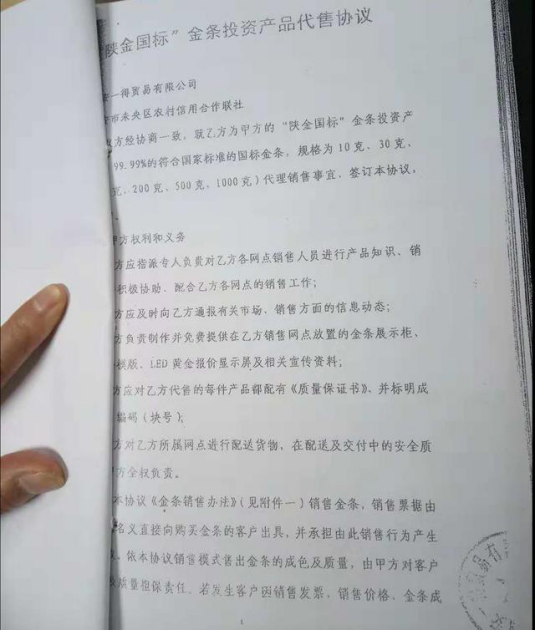 陕金国标”金条投资产品代售协议
一得贸易有限公司
市未央区农村信用合作联社
方经协商一致，就乙方为甲方的“陕金国标”金条投资产
99.99%的符合国家标准的国标金条，规格为10克、30克、
克、200克、500克、1000克）代理销售事宜、签订本协议。
方权利和义务
方应指派专人负责对乙方各网点销售人员进行产品知识、销
积极协助、配合乙方各网点的销售工作；
方应及时向乙方通报有关市场、销售方面的信息动态；
方负责制作并免费提供在乙方销售网点放置的金条展示柜、
模版、LED黄金报价显示屏及相关宣传资料；
方应对乙方代售的每件产品都配有《质量保证书》、并标明成
编码（块号）；
方对乙方所属网点进行配送货物，在配送及交付中的安全质
方全权负责。
本协议《金条销售办法》（见附件一）销售金条，销售票据由
名义直接向购买金条的客户出具，并承担由此销售行为产生
依本协议销售模式售出金条的成色及质量，由甲方对客户
质量担保责任。若发生客户因销售发票、销售价格、金条成
1
有